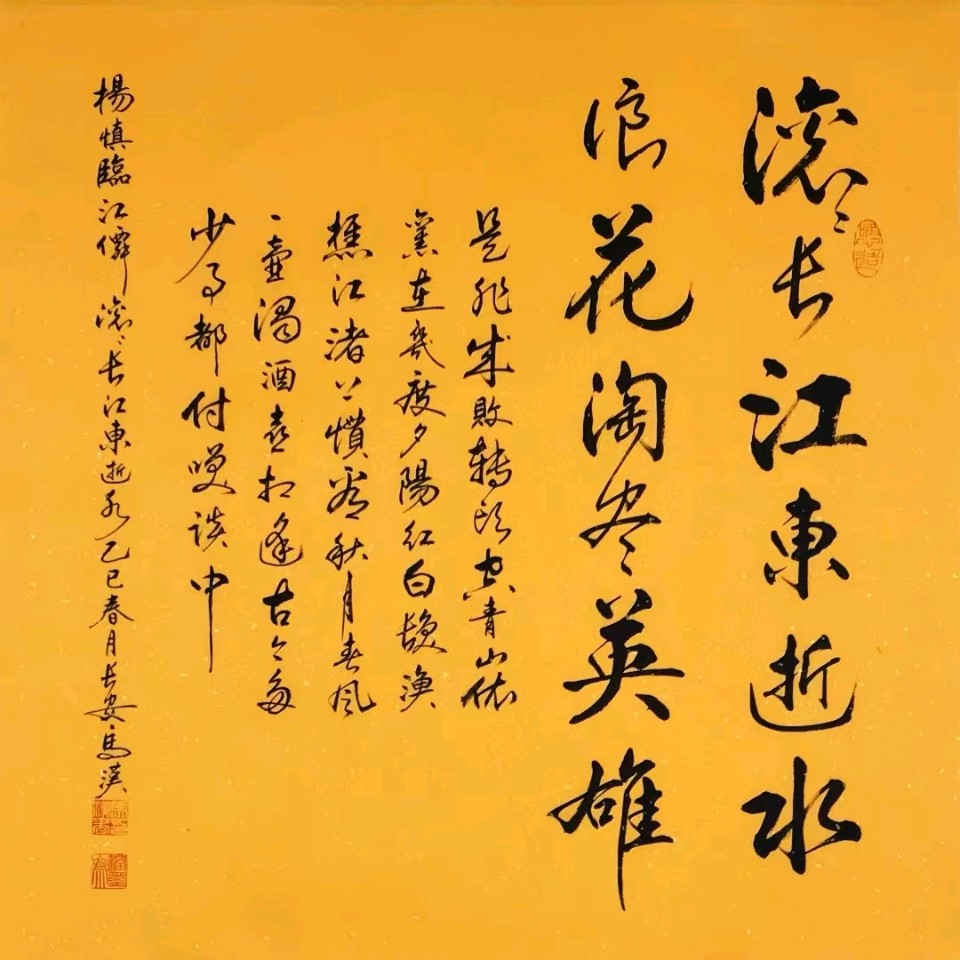 滚〻长江東逝水
浪花淘尽英雄
是非成敗轉头空青山依
舊在幾度夕陽红白髮渔
樵江渚上慣看秋月春风
一壶濁酒喜相逢古今多
少事都付笑谈中
楊慎臨江僊滚〻长江東逝水乙巳春月长安馬漢